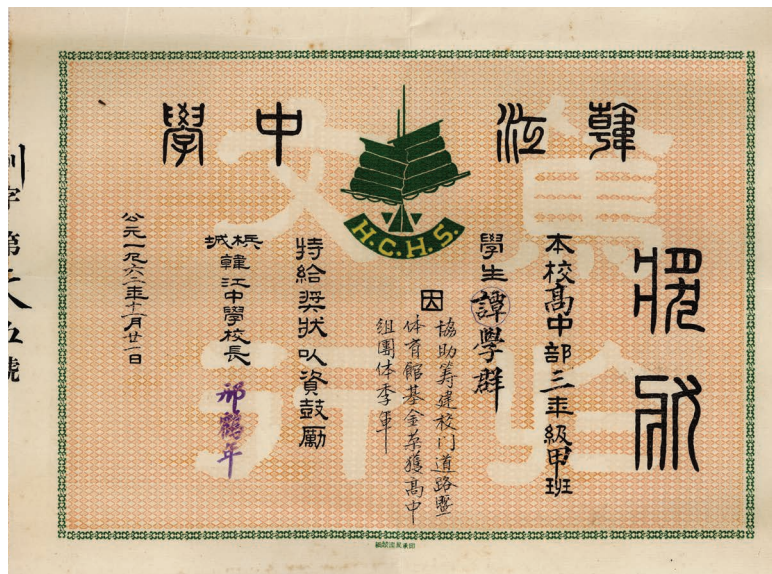 韓江中學
H.C.H.S.
獎狀
本校高中部三年級甲班
學生譚學群
因
協助筹建校门道路暨
体育館基金荣獲高中
組團体季軍
特給奨狀以資鼓勵
檳城韓江中學校長
邢鶴年
公元一九六二年十一月廿一日